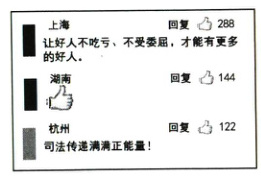 上海 回复 288
让好人不吃亏、不受委屈，才能有更多
的好人。
湖南 回复 144
杭州 回复 122
司法传递满满正能量！